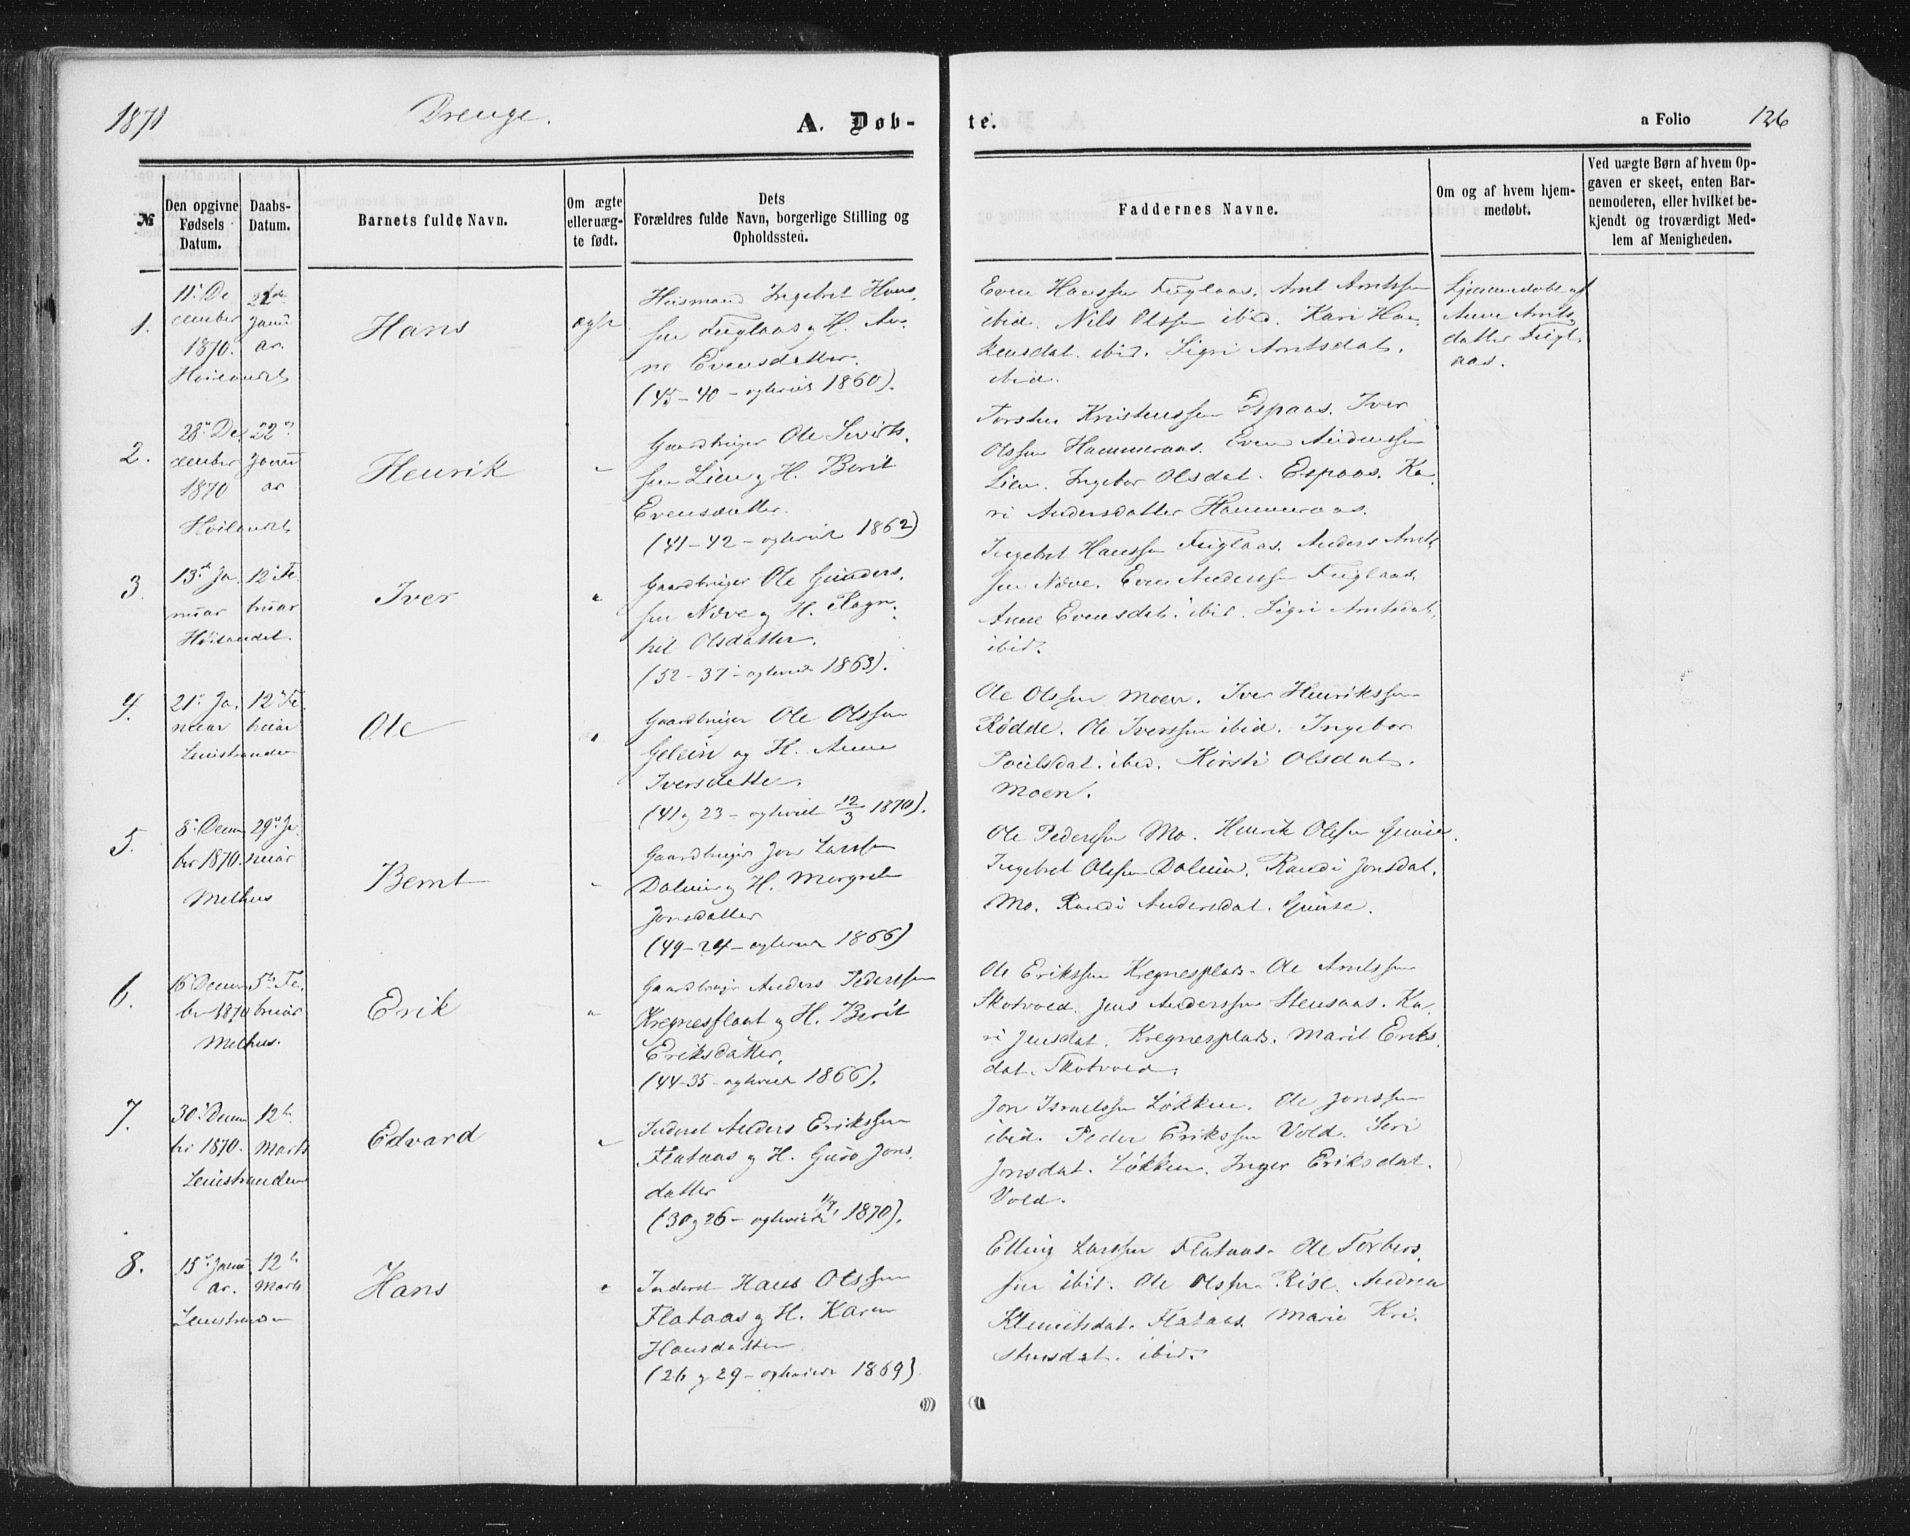 1871 Drenge. A. Døb- te. a Folio 126
№
Den opgivne
Fødsels
Datum.
Daabs-
Datum.
Barnets fulde Navn.
Om ægte
eller uæg-
te født.
Dets
Forældres fulde Navn, borgerlige Stilling og
Opholdssted.
Faddernes Navne.
Om og af hvem hjem-
medøbt.
Ved uægte Børn af hvem Op-
gaven er skeet, enten Bar-
nemoderen, eller hvilket be-
kjendt og troværdigt Med-
lem af Menigheden.
1.
11' De
cember
1870.
Høilandet
22de
Janu
ar.
Hans
ægte
Husmand Ingebret Hans,
sen Fuglaas og H. An,
ne Evensdatter.
(45 - 40 - ogteviet 1860).
Even Hanssen Fuglaas. Arnt Arntssen
ibid. Nils Olssen ibid. Kari Haa
kensdat. ibid. Sigri Arntsdat.
ibid.
Hjemmedøbt af
Anne Arnts,
datter Fugl,
aas.
2.
28' De,
cember
1870
Høilandet
22'
Janu
ar
Henrik
Gaardbruger Ole Sivirts,
sen Lien og H. Berit
Evensdatter.
(41 - 42 - ogteviet 1862)
Torsten Kristenssen Espaas. Iver
Olssen Hammeraas. Even Anderssen
Lien. Ingebor Olsdat. Espaas. Ka,
ri Andersdatter Hammeraas.
3.
13' Ja,
nuar
Høilandet.
12' Fe,
bruar
Iver
Gaardbruger Ole Gunders,
sen Næve og H. Ragn,
hil Olsdatter.
(52 - 37 - ogteviet 1863).
Ingebret Hanssen Fuglaas. Anders Arnt,
sen Næve. Even Anderssen Fuglaas.
Anne Evensdat. ibid. Sigri Arntsdat.
ibid.
4.
21' Ja,
nuar
Leinstranden
12' Fe
bruar
Ole
Gaardbruger Ole Olssen
og H. Anne
Iversdatter.
(41 og 23 - ogteviet 12/3 1870).
Ole Olssen Moen. Iver Henrikssen
Rødde. Ole Iverssen ibid. Ingebor
Poulsdat. ibid. Kirsti Olsdat.
Moen.
5.
8' Decem
ber 1870.
Melhus
29' Ja,
nuar
Bernt
Gaardbruger Jon Larssen
og H. Margret
Jonsdatter
(49 - 24 - ogteviet 1866)
Ole Pederssen Mo. Henrik Olssen
Ingebret Olssen Randi Jonsdat.
Mo. Randi Andersdat.
6.
Decem
ber 1870
Melhus.
5te Fe,
bruar
Erik
Gaardbruger Anders Pederssen
Kregnesflaat og H. Berit
Eriksdatter.
(44 - 35 - ogteviet 1866).
Ole Erikssen Kregnesplads. Ole Arntssen
Skotvold. Jens Anderssen Stensaas. Ka,
ri Jensdat. Kregnesplads. Marit Eriks,
dat. Skotvold.
7.
30' Decem
ber 1870.
Leinstranden
12te
Marts
Edvard
Inderst Anders Erikssen
Flataas og H. Guro Jons,
datter
(30 og 26 - ogteviet 1870).
Jon Israelssen Løkken. Ole Jonssen
ibid. Peder Erikssen Vold. Siri
Jonsdat. Løkken. Inger Eriksdat.
Vold.
8.
15' Janu
ar.
Leinstranden
12te
Marts
Hans
Inderst Hans Olssen
Flataas og H. Karen
Hansdatter
(26 og 29 - ogteviet 1869)
Elling Larssen Flataas. Ole Torbers,
sen ibid. Ole Olssen Rise. Andrea
Klemitsdat. Flataas. Marie Kri,
stensdat. ibid.